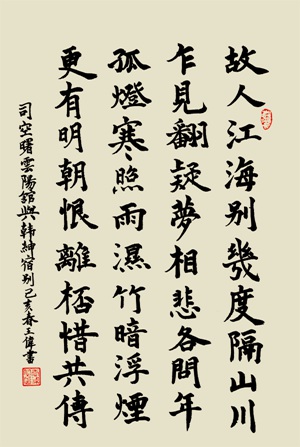 故人江海别幾度隔山川
乍見翻疑夢相悲各問年
孤燈寒照雨濕竹暗浮煙
更有明朝恨離桮惜共傳
司空曙雲陽館與韩紳宿别己亥春王偉書